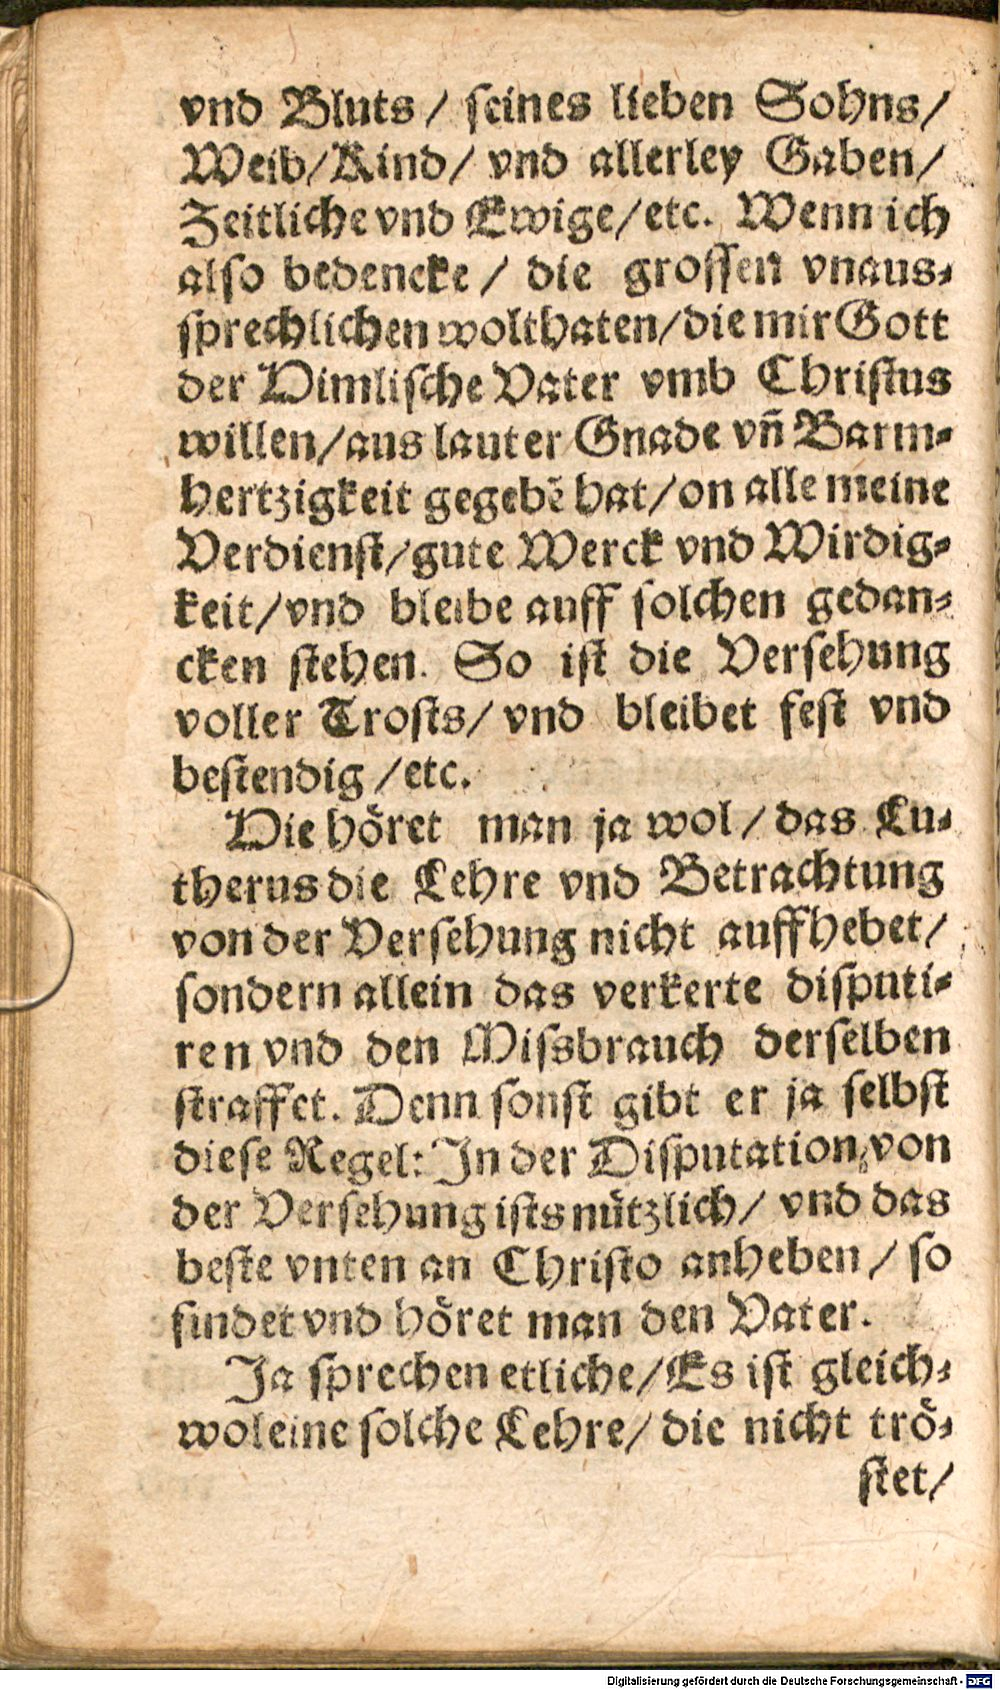 vnd Bluts / seines lieben Sohns/
Weib/Kind/ vnd allerley Gaben/
Zeitliche vnd Ewige/etc. Wenn ich
also bedencke / die grossen vnaus⸗
sprechlichen wolthaten/die mir Gott
der Himlische Vater vmb Christus
willen/aus lauter Gnade vñ Barm⸗
hertzigkeit gegebẽ hat/on alle meine
Verdienst/gute Werck vnd Wirdig⸗
keit/vnd bleibe auff solchen gedan⸗
cken stehen. So ist die Versehung
voller Trosts/ vnd bleibet fest vnd
bestendig /etc.
Hie höret man ja wol/ das Lu⸗
therus die Lehre vnd Betrachtung
von der Versehung nicht auffhebet/
sondern allein das verkerte disputi⸗
ren vnd den Missbrauch derselben
straffet. Denn sonst gibt er ja selbst
diese Regel: In der Disputation von
der Versehung ists nützlich/ vnd das
beste vnten an Christo anheben / so
findet vnd höret man den Vater.
Ja sprechen etliche/Es ist gleich⸗
wol eine solche Lehre/ die nicht trö⸗
stet/
Digitalisierung gefördert durch die Deutsche Forschungsgemeinschaft - DFG